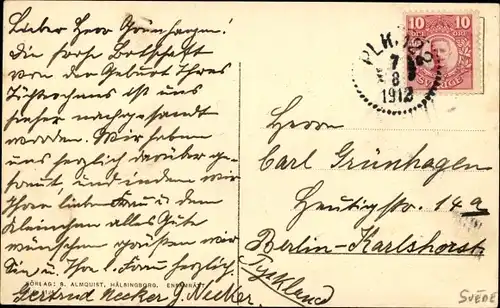 Lieber Herr Grünhagen!
Die frohe Botschaft
von der Geburt Ihres
Töchterchens ist uns
hieher nachgesandt
worden. Wir haben
uns herzlich darüber ge-
freut, und indem wir
Ihrer lieben Frau u dem
Kleinchen alles Gute
wünschen grüßen wir
Sie u. Ihre l. Frau herzlich.
Gertrud Necker J. Necker.
FÖRLAG: S. ALMQUIST, HÄLSINGBORG. ENSAMRÄTT
10 10
SVERIGE
PLK.
7
8
1912
Herrn
Carl Grünhagen
14a
Berlin-Karlshorst
Tyskland
SUÈDE